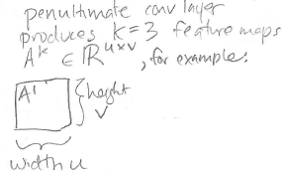 penultimate conv layer
produces k=3 feature maps
Aᵏ ∈ ℝᵘˣᵛ, for example:
A¹ height
v
width u